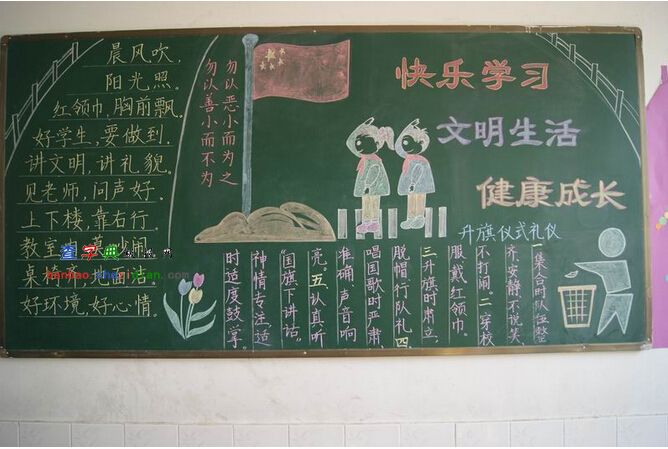 晨风吹,
阳光照。
红领巾,胸前飘。
好学生,要做到,
讲文明,讲礼貌。
见老师,问声好。
上下楼,靠右行。
教室 吵闹
桌椅 地面洁
好环境,好心情。
查字典
勿以恶小而为之
勿以善小而不为
快乐学习
文明生活
健康成长
升旗仪式礼仪
一集合时队伍整
齐、安静,不说笑、
不打闹。二穿校
服戴红领巾。
三升旗时肃立,
脱帽行队礼。四
唱国歌时严肃,
准确,声音响
亮。五、认真听
“国旗下讲话”
神情专注,适
时适度鼓掌。